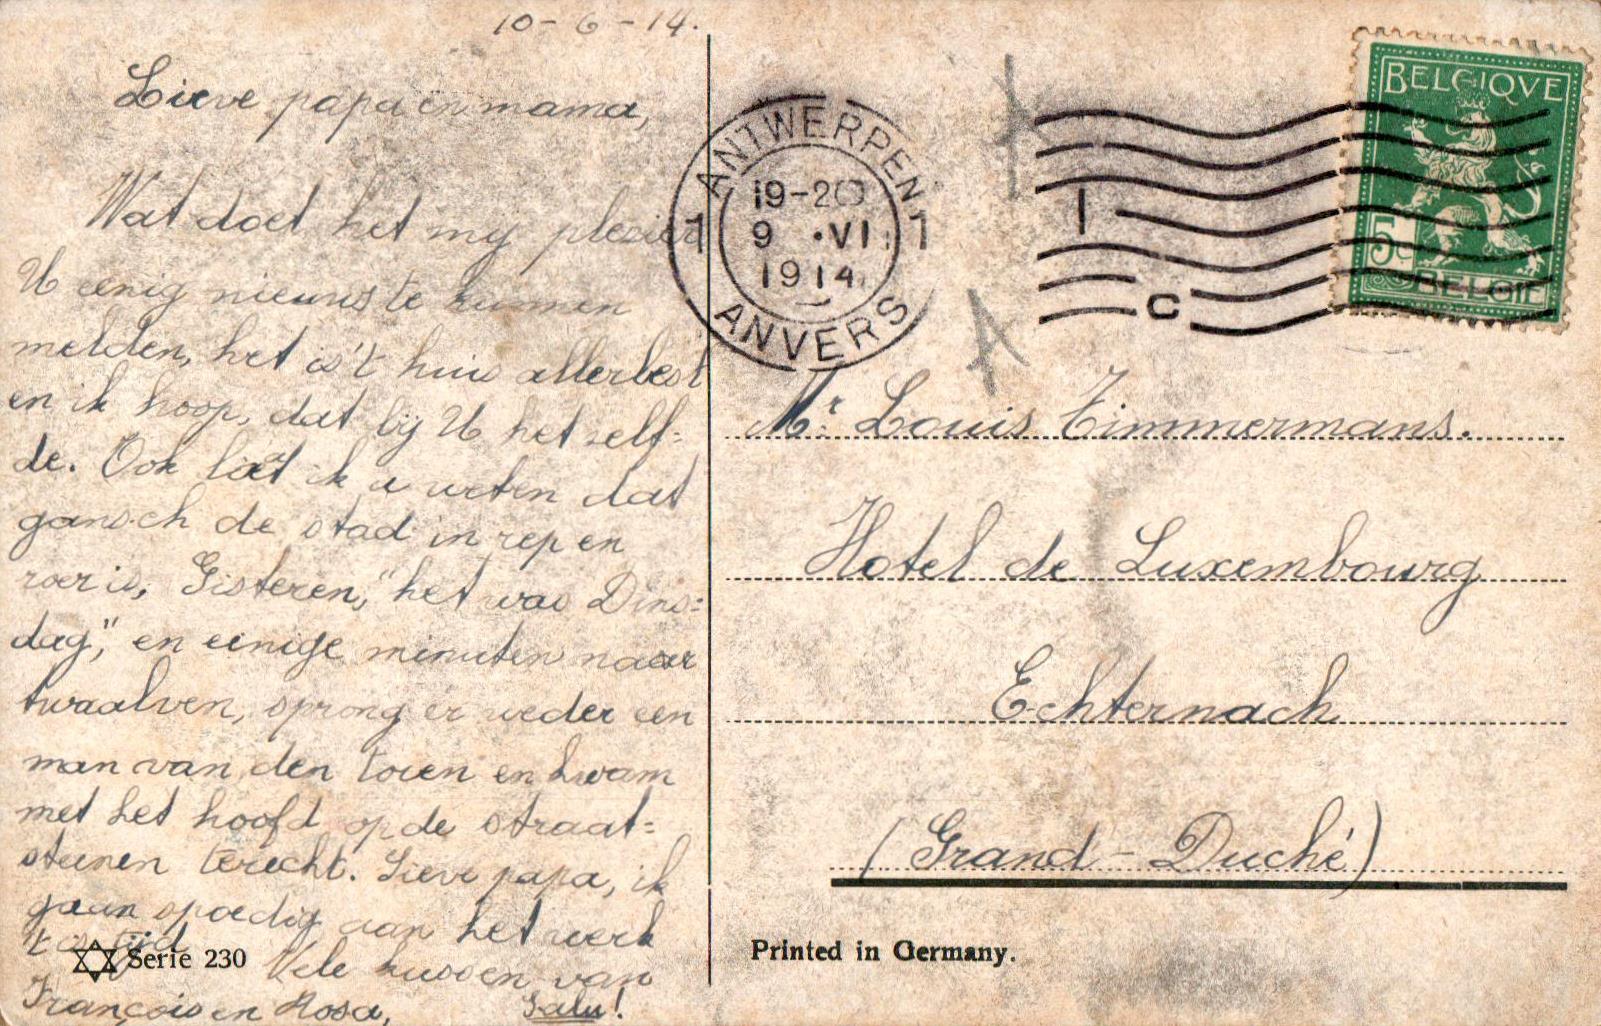 10-6-14.
Lieve papa en mama,
Wat doet het mij plezier
U eenig nieuws te kunnen
melden, het is 't huis allerbest
en ik hoop, dat bij U het zelf=
de. Ook laat ik u weten dat
gansch de stad in rep en
roer is, Gisteren, "het was Dins=
dag," en eenige minuten naar
twaalven, sprong er weder een
man van den toren en kwam
met het hoofd op de straat=
steenen terecht. Lieve papa, ik
gaan spoedig aan het werk
't is tijd Vele kussen van
François en Rosa, Salu!
Serie 230
ANTWERPEN
1 1
19-20
9 ·VI
1914
ANVERS
1
C
BELGIQVE
5c
BELGIE
A
Mr. Louis Timmermans.
Hotel de Luxembourg
Echternach
(Grand-Duché)
Printed in Germany.